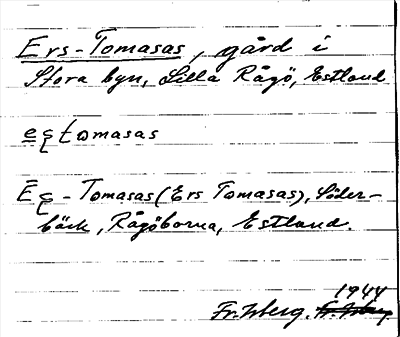 Ers-Tomasas, gård i
Stora byn, Lilla Rågö, Estland
eʂtomasas
Ēʂ-Tomasas (Ers Tomasas), Söder-
bäck, Rågöborna, Estland.
1944
Fr. Wberg.